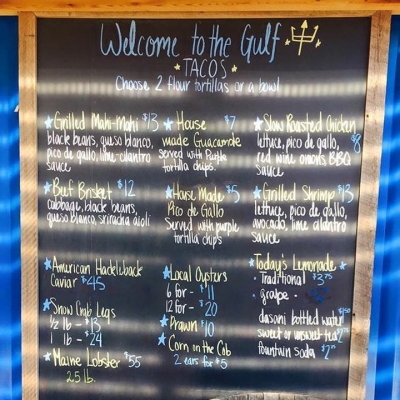 Welcome to the Gulf
TACOS
Choose 2 flour tortillas or a bowl
Grilled Mahi-Mahi $13
black beans, queso blanco,
pico de gallo, lime cilantro
sauce
Beef Brisket $12
cabbage, black beans,
queso blanco, sriracha aioli
American Hackleback
Caviar $45
Snow Crab Legs
1/2 lb - $13
1 lb - $24
Maine Lobster $55
2.5 lb.
House $7
made Guacamole
Served with Purple
tortilla chips.
House Made $5
Pico de Gallo
Served with purple
tortilla chips
Local Oysters
6 for - $11
12 for - $20
Prawn $10
Corn on the Cob
2 ears for $5
Slow Roasted Chicken
lettuce, pico de gallo, $8
red wine onions, BBQ
sauce
Grilled Shrimp $13
lettuce, pico de gallo,
avocado, lime cilantro
sauce
Today's Lemonade
- Traditional $2.75
- grape -
dasani bottled water $1.50
sweet or unsweet tea $2.75
fountain soda $2.75